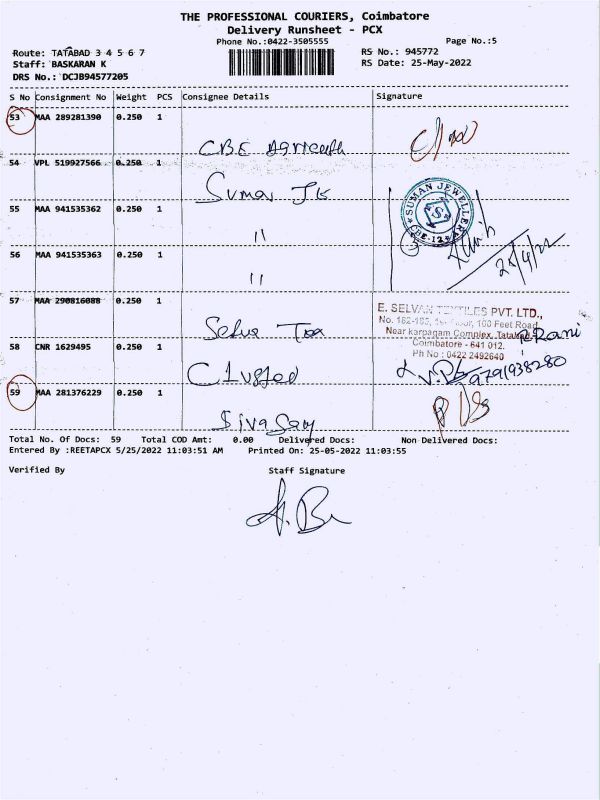 THE PROFESSIONAL COURIERS, Coimbatore
Delivery Runsheet - PCX
Phone No.:0422-3505555
Page No.:5
Route: TATABAD 3 4 5 6 7
RS No.: 945772
Staff: BASKARAN K
RS Date: 25-May-2022
DRS No.: DCJB94577205
S No Consignment No Weight PCS Consignee Details Signature
53 MAA 289281390 0.250 1
CBE
54 VPL 519927566 0.250 1
Suman
SUMAN JEWELLERY
CBE-12
55 MAA 941535362 0.250 1
"
56 MAA 941535363 0.250 1
"
57 MAA 290816088 0.250 1
E. SELVAN TEXTILES PVT. LTD.,
No. 182-185, 1st Floor, 100 Feet Road,
Near karpagam Complex, Tatabad,
R.Rani
58 CNR 1629495 0.250 1
Coimbatore - 641 012.
Ph No : 0422 2492640
9791938280
59 MAA 281376229 0.250 1
Total No. Of Docs: 59 Total COD Amt: 0.00 Delivered Docs: Non Delivered Docs:
Entered By :REETAPCX 5/25/2022 11:03:51 AM Printed On: 25-05-2022 11:03:55
Verified By Staff Signature